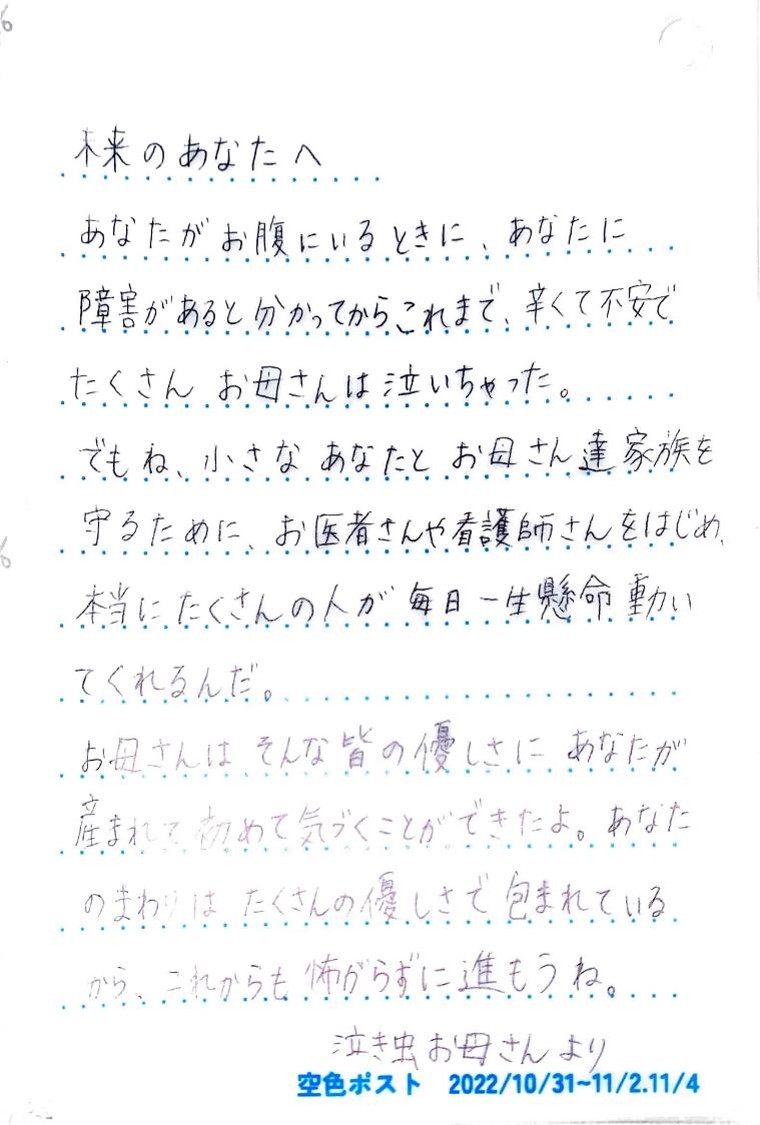 未来のあなたへ
あなたがお腹にいるときに、あなたに
障害があると分かってからこれまで、辛くて不安で
たくさん お母さんは泣いちゃった。
でもね、小さな あなたと お母さん達家族を
守るために、お医者さんや看護師さんをはじめ、
本当にたくさんの人が 毎日一生懸命動い
てくれるんだ。
お母さんは そんな皆の優しさに あなたが
産まれて初めて気づくことができたよ。あなた
のまわりは たくさんの優しさで包まれている
から、これからも怖がらずに進もうね。
泣き虫お母さんより
空色ポスト 2022/10/31~11/2.11/4